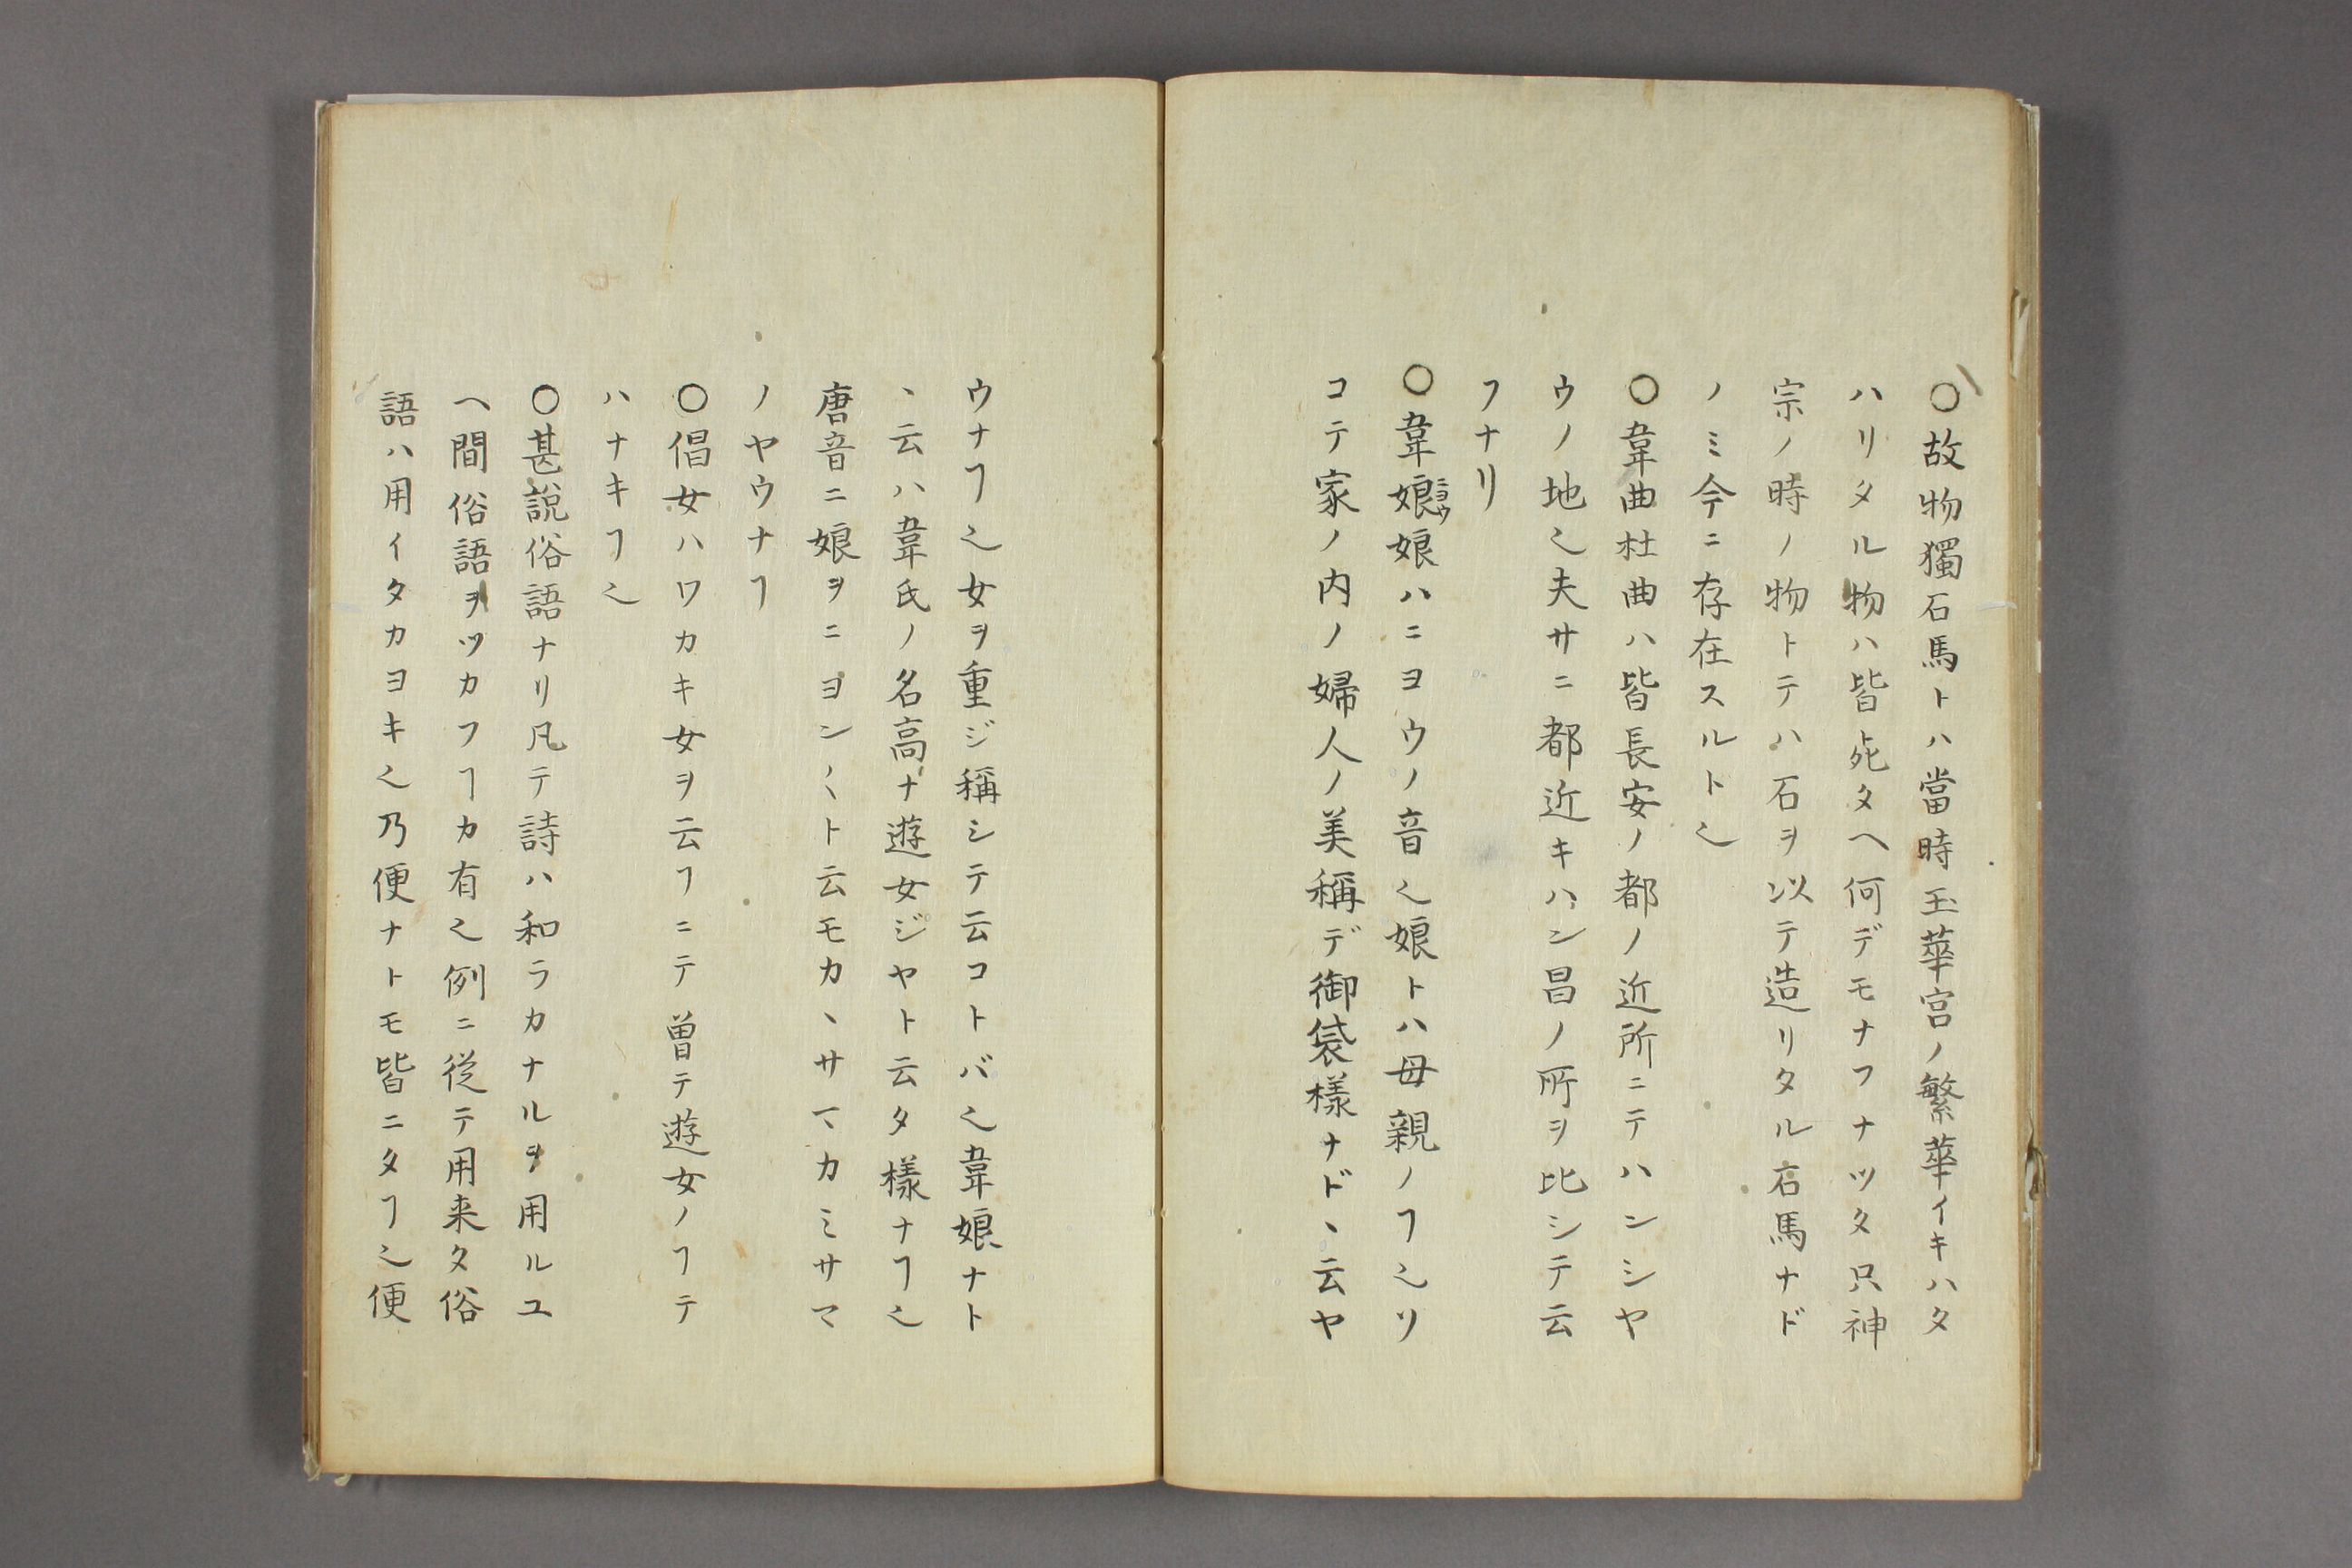 ○故物獨石馬トハ當時玉華宮ノ繁華イキハタ
ハリタル物ハ皆死タヘ何デモナフナツタ只神
宗ノ時ノ物トテハ石ヲ以テ造リタル石馬ナド
ノミ今ニ存在スルト也
○韋曲杜曲ハ皆長安ノ都ノ近所ニテハンシヤ
ウノ地也夫サニ都近キハン昌ノ所ヲ比シテ云
フナリ
○韋娘娘ハニヨウノ音也娘トハ母親ノヿ也ソ
ニヨウ
コテ家ノ内ノ婦人ノ美稱デ御袋様ナド、云ヤ
ウナヿ也女ヲ重ジ稱シテ云コトバ也韋娘ナト
、云ハ韋氏ノ名高ナ遊女ジヤト云タ様ナヿ也
唐音ニ娘ヲニヨン〱ト云モカヽサマカミサマ
ノヤウナヿ
○倡女ハワカキ女ヲ云フニテ曽テ遊女ノヿテ
ハナキヿ也
○甚説俗語ナリ凡テ詩ハ和ラカナルヲ用ルユ
ヘ間俗語ヲツカフヿカ有也例ニ従テ用来タ俗
語ハ用イタカヨキ也乃便ナトモ皆ニタヿ也便